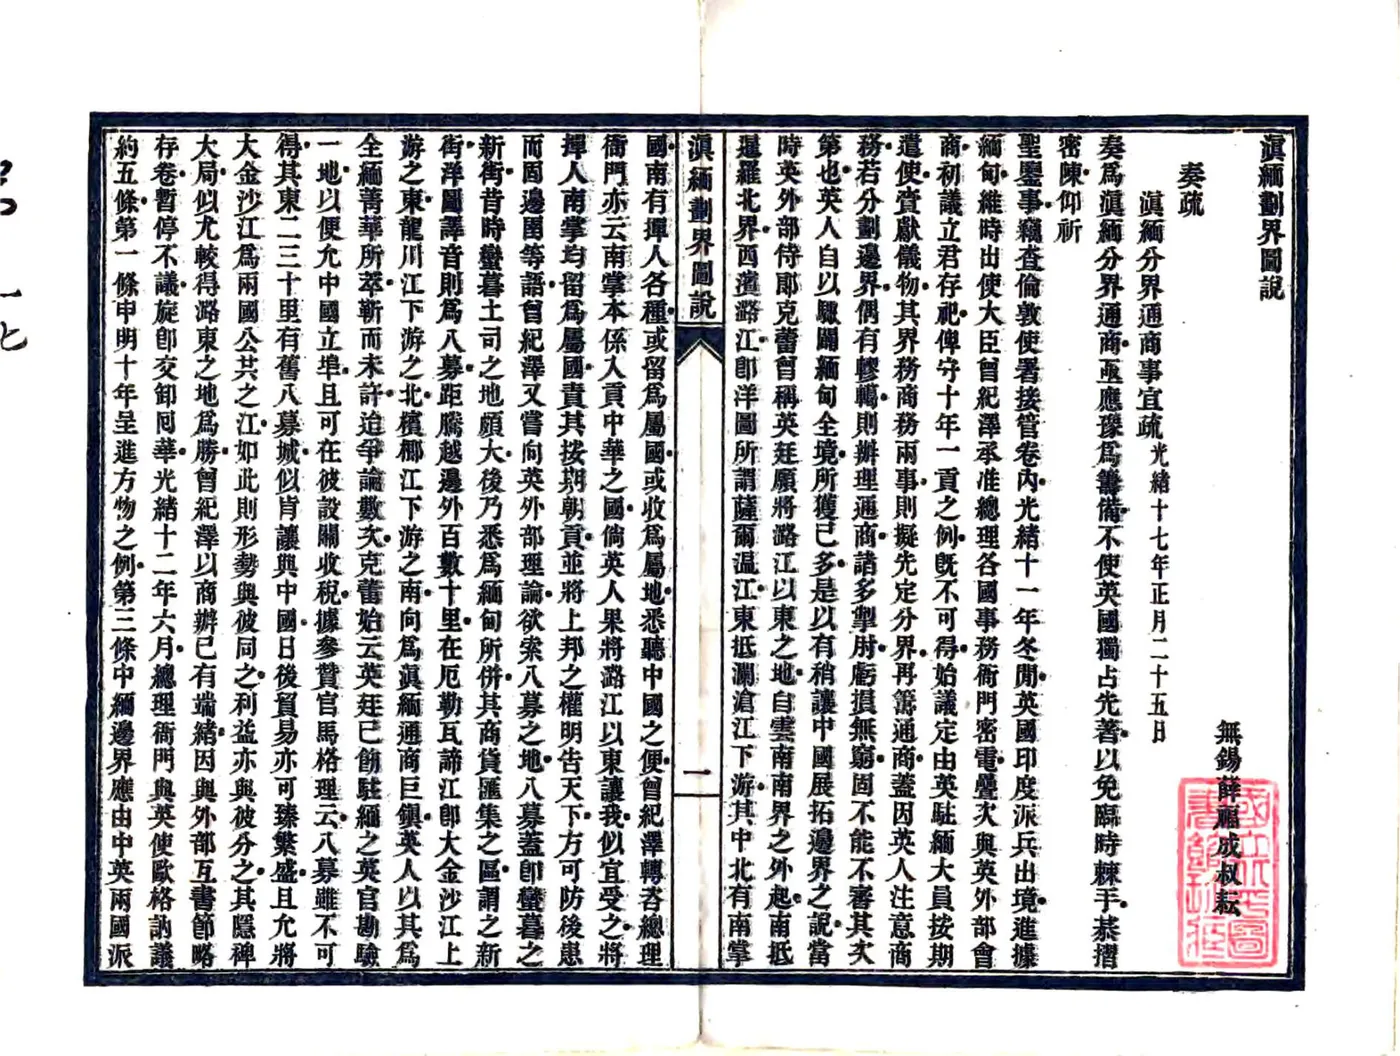 滇緬劃界圖說
無錫薛福成叔耘
奏疏
滇緬分界通商事宜疏光緒十七年正月二十五日
奏為滇緬分界通商亟應豫為籌備不使英國獨占先著以免臨時棘手恭摺
密陳仰祈
聖鑒事竊查倫敦使署接管卷內光緒十一年冬閒英國印度派兵出境進據
緬甸維時出使大臣曾紀澤承准總理各國事務衙門密電疊次與英外部會
商初議立君存祀俾守十年一貢之例旣不可得始議定由英駐緬大員按期
遣使賷獻儀物其界務商務兩事則擬先定分界再籌通商蓋因英人注意商
務若分劃邊界偶有轇轕則辦理通商諸多掣肘虧損無窮固不能不審其次
第也英人自以驟闢緬甸全境所獲已多是以有稍讓中國展拓邊界之說當
時英外部侍郞克蕾曾稱英廷願將潞江以東之地自雲南南界之外起南抵
暹羅北界西濱潞江卽洋圖所謂薩爾温江東抵瀾滄江下游其中北有南掌
滇緬劃界圖說
一
國南有撣人各種或留為屬國或收為屬地悉聽中國之便曾紀澤轉咨總理
衙門亦云南掌本係入貢中華之國倘英人果將潞江以東讓我似宜受之將
撣人南掌均留為屬國責其按期朝貢並將上邦之權明告天下方可防後患
而固邊圉等語曾紀澤又嘗向英外部理論欲索八募之地八募蓋卽蠻暮之
新街昔時蠻暮土司之地頗大後乃悉為緬甸所併其商貨匯集之區謂之新
街洋圖譯音則為八募距騰越邊外百數十里在厄勒瓦諦江卽大金沙江上
游之東龍川江下游之北檳榔江下游之南向為滇緬通商巨鎮英人以其為
全緬菁華所萃靳而未許迫爭論數次克蕾始云英廷已飭駐緬之英官勘驗
一地以便允中國立埠且可在彼設關收稅據參贊官馬格理云八募雖不可
得其東二三十里有舊八募城似肯讓與中國日後貿易亦可臻繁盛且允將
大金沙江為兩國公共之江如此則形勢與彼同之利益亦與彼分之其隱裨
大局似尤較得潞東之地為勝曾紀澤以商辦已有端緒因與外部互書節略
存卷暫停不議旋卽交卸囘華光緒十二年六月總理衙門與英使歐格訥議
約五條第一條申明十年呈進方物之例第三條中緬邊界應由中英兩國派